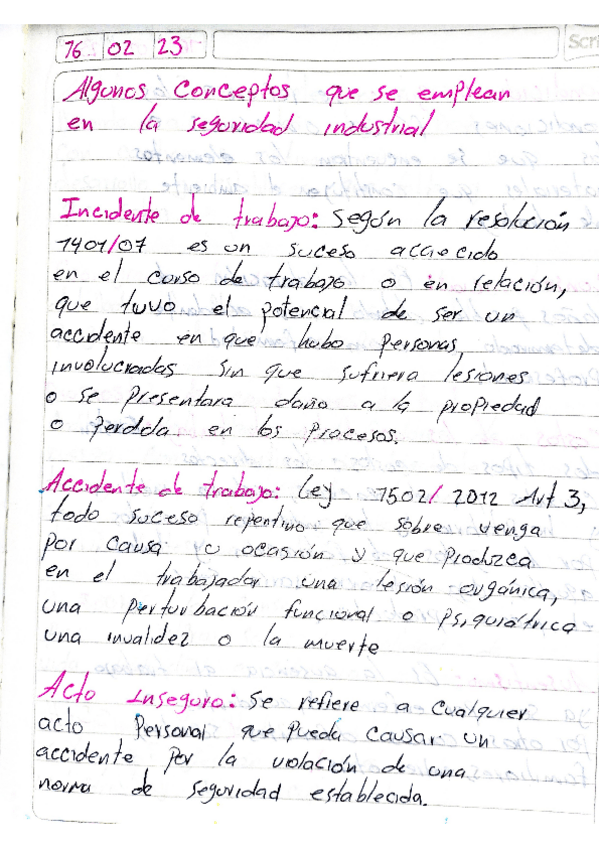 16 02 23
Scri
Algunos Conceptos que se emplean
en la seguridad industrial
Incidente de trabajo: según la resolución
1401/07 es un suceso acaecido
en el curso de trabajo o en relación,
que tuvo el potencial de ser un
accidente en que hubo personas
involucradas sin que sufriera lesiones
o se presentara daño a la propiedad
o perdida en los procesos.
Accidente de trabajo: Ley 1502/ 2012 Art 3,
todo suceso repentino que sobre venga
por causa u ocasión y que produzca
en el trabajador una lesión orgánica,
una perturbación funcional o psiquiátrica
una invalidez o la muerte
Acto Inseguro: Se refiere a cualquier
acto personal que pueda causar un
accidente por la violación de una
norma de seguridad establecida.